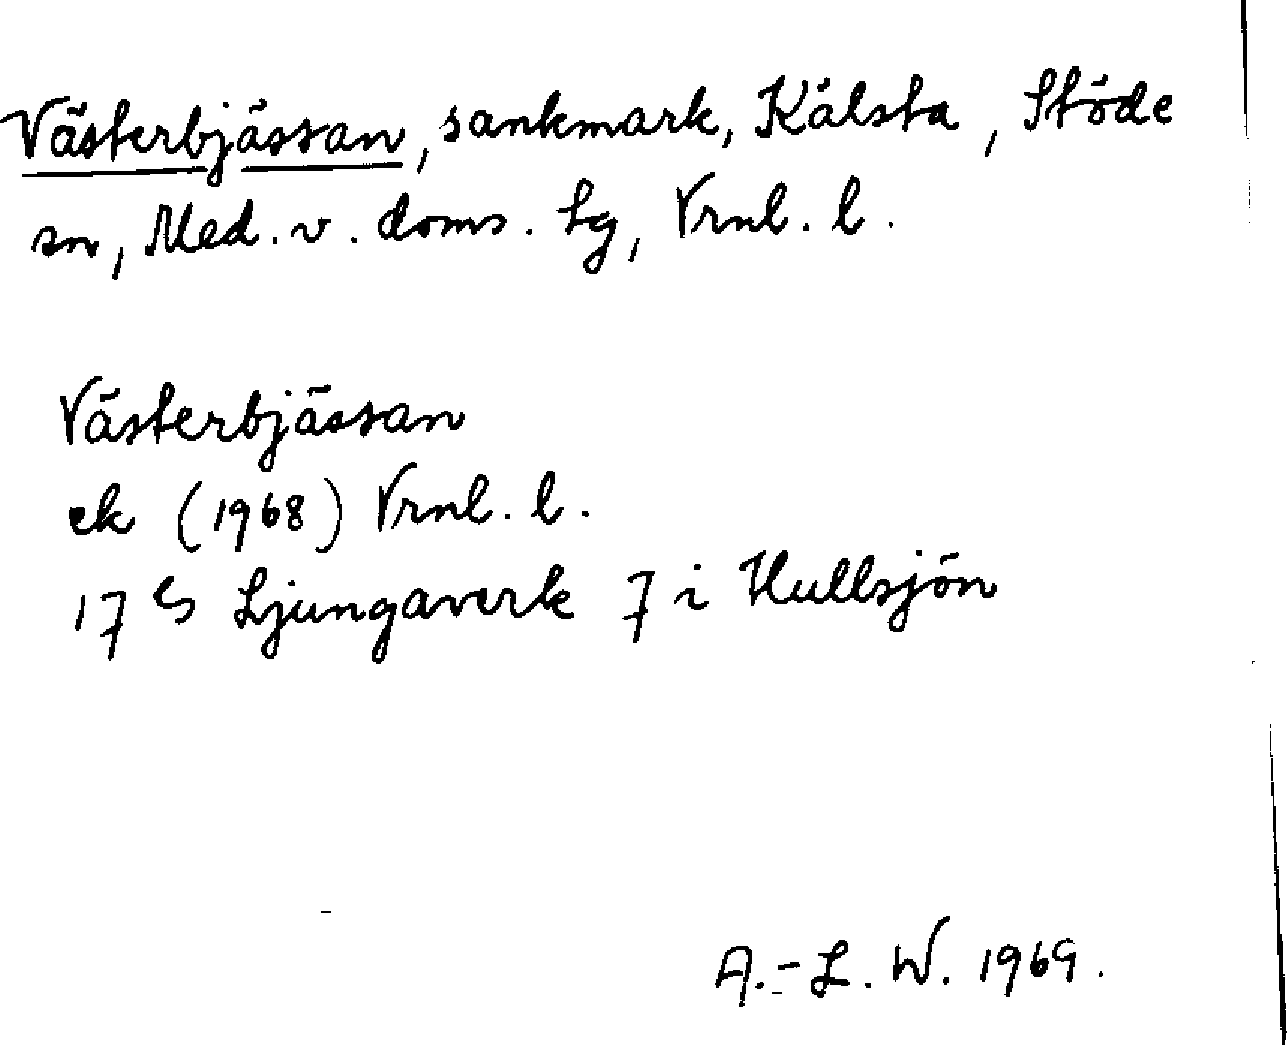 Västerbjässan, sankmark, Kälsta, Stöde
sn, Med. v. doms. tg, Vrnl. l.
Västerbjässan
ek (1968) Vrnl. l.
17 G Ljungaverk 7 i Hullsjön
A.-L. W. 1969.